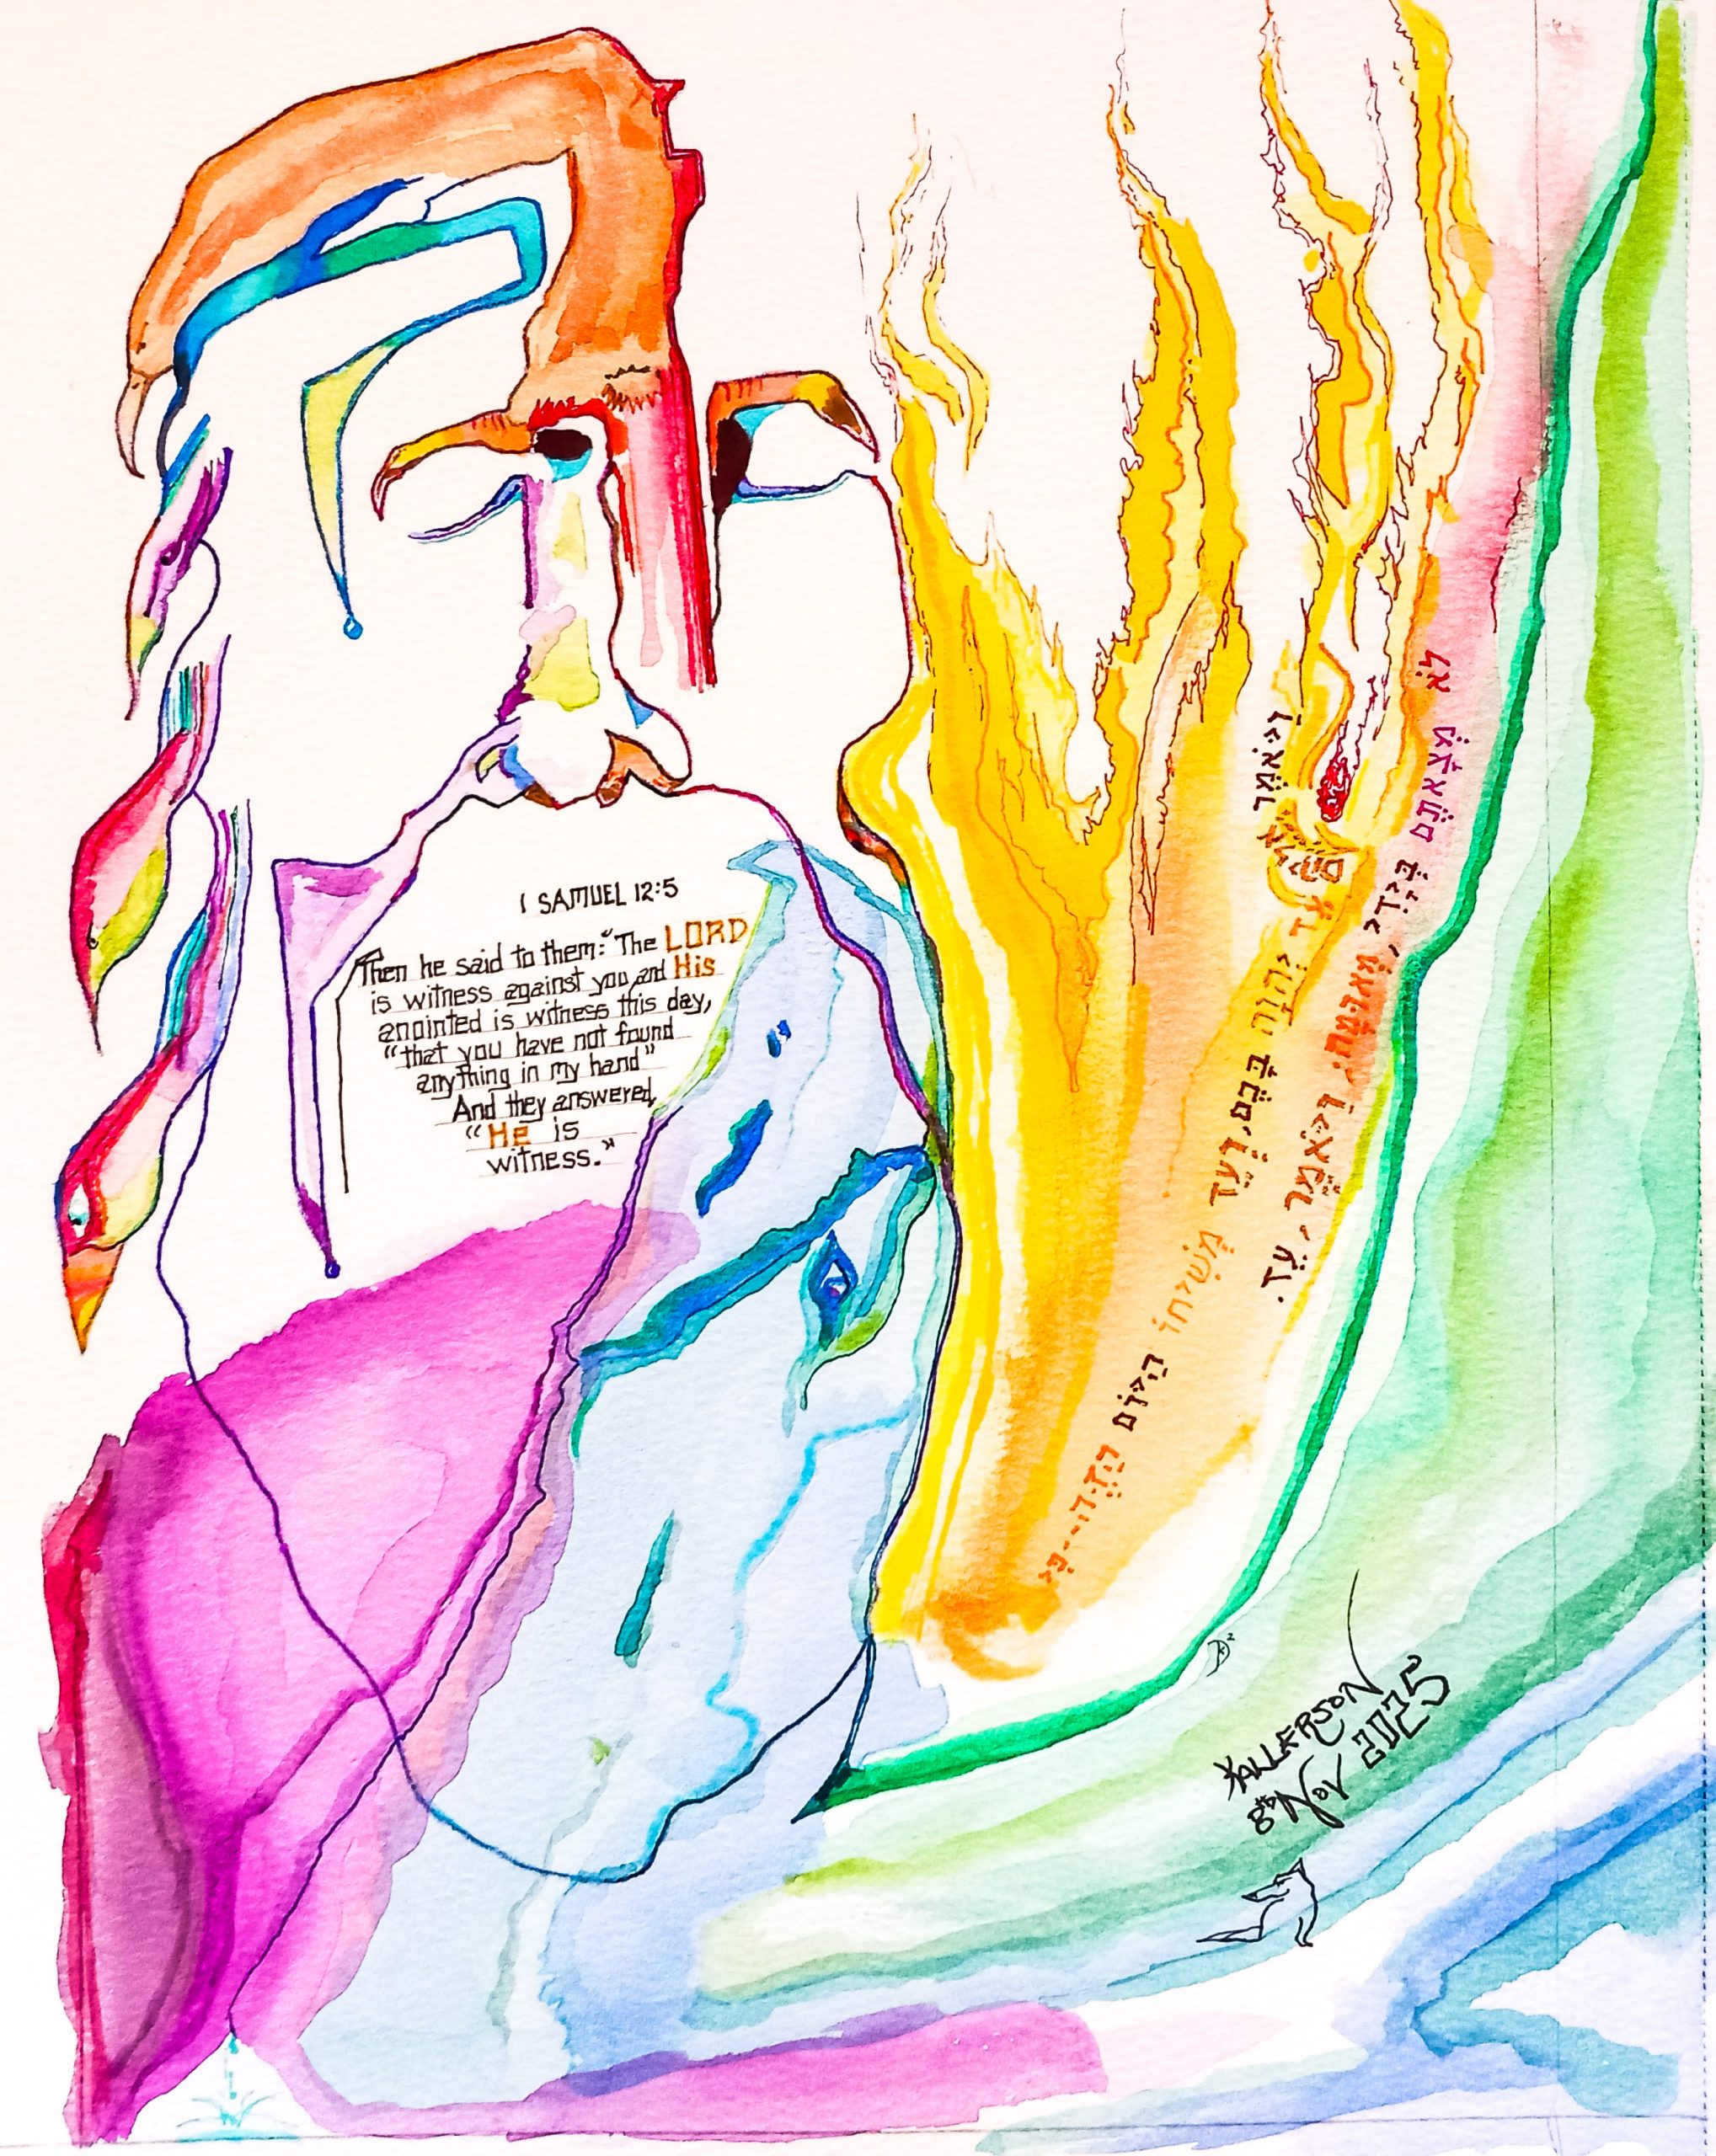 1 SAMUEL 12:5
Then he said to them: "The LORD
is witness against you, and His
anointed is witness this day,
"that you have not found
anything in my hand"
And they answered,
"He is
witness."
וַיֹּאמֶר אֲלֵיהֶם עֵד יְהוָה בָּכֶם, וְעֵד מְשִׁיחוֹ הַיּוֹם הַזֶּה--כִּי
לֹא מְצָאתֶם בְּיָדִי, מְאוּמָה; וַיֹּאמֶר, עֵד.
KALLERSON
8th NOV 2025